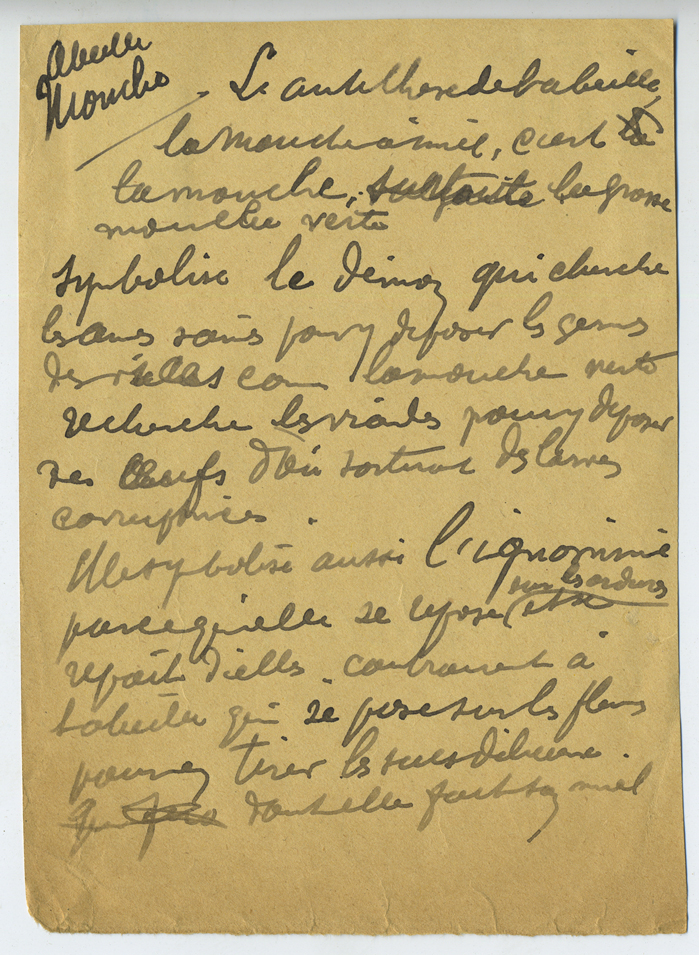 Abeille
Mouche
- L'antithèse de l'abeille,
la mouche à miel, c'est la
la mouche, surtout la grosse
mouche verte
symbolise le démon qui cherche
les âmes saines pour y déposer les germes
des comme la mouche verte
recherche les viandes pour y déposer
ses oeufs d'où sortiront des larves
corruptrices.
Elle symbolise aussi l'ignominie
sur les ordures
parce qu'elle se repose et se
repait d'elles, contrairement à
l'abeille qui se pose sur les fleurs
pour en tirer les sucs
dont elle fait son miel